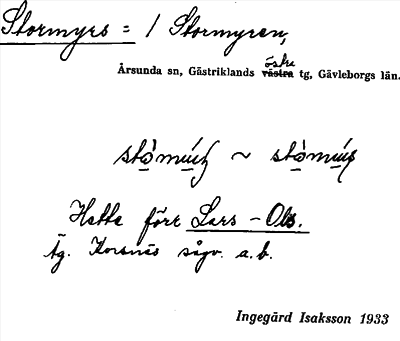 Stormyrs = / Stormyren,
östra
Årsunda sn, Gästriklands västra tg, Gävleborgs län.
~
Hette förr Lars-Ols.
Äg. Korsnäs sågv. a.b.
Ingegärd Isaksson 1933